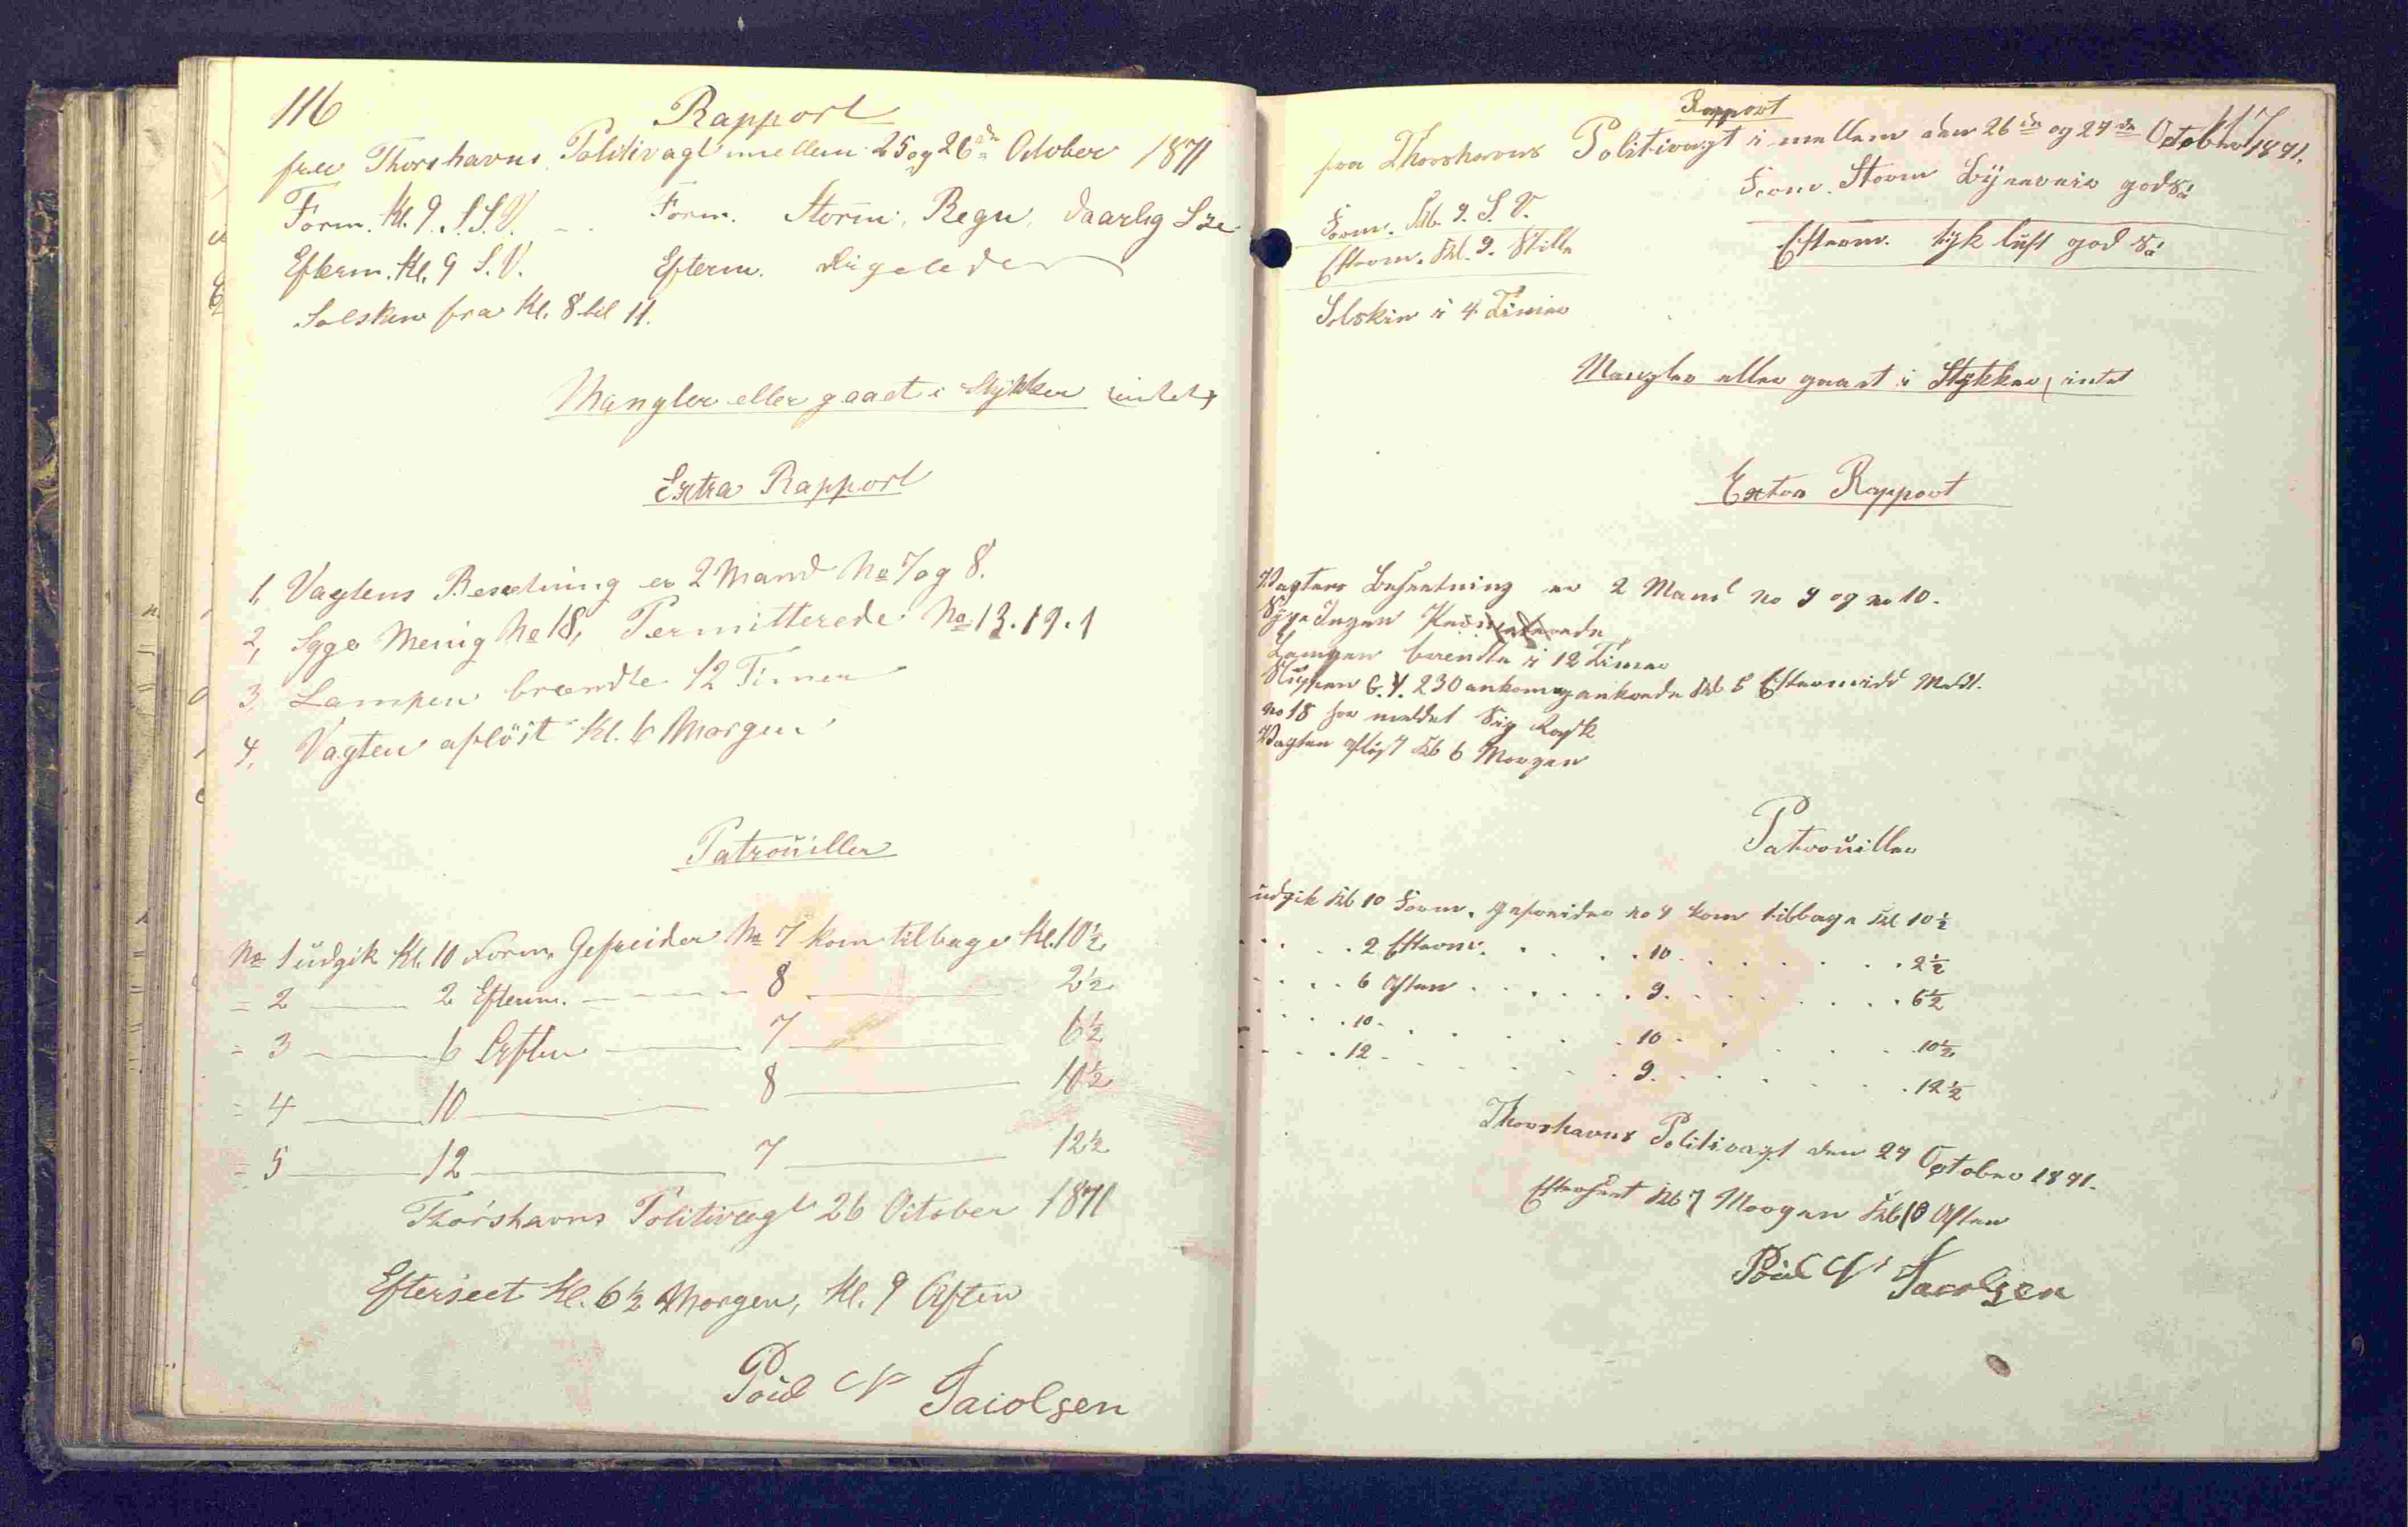 116
Rapport
fra Thorshavns Politivagt imellem 25 og 26de October 1871
Form. Kl. 9. S.S.V. Form. Storm, Regn, daarlig Søe
Efterm. Kl. 9 S.V. Efterm. ligeledes
Solskin fra Kl. 8 til 11.
Mangler eller gaaet i Stykker (intet)
Extra Rapport
1, Vagtens Besætning er 2 Mand No 7 og 8.
2, Syge Menig No 18, Permitterede No 13. 19. 1
3, Lampen brændte 12 Timer
4, Vagten aflöst Kl. 6 Morgen
Patrouiller
No 1 udgik Kl. 10 Form. Gefreider No 7 kom tilbage Kl. 10½
= 2 2 Efterm. 8 2½
= 3 6 Aften 7 6½
= 4 10 8 10½
= 5 12 7 12½
Thorshavns Politivagt 26 October 1871
Efterseet Kl. 6½ Morgen, Kl. 9 Aften
Poul Jacobsen
117
Rapport
fra Thorshavns Politivagt i mellem den 26de og 27de October 1871.
Form. Kl. 9. S.V. Form. Storm Byeveir god Sö
Efterm. Kl. 9. Stille Efterm. tyk luft god Sö
Solskin i 4 Timer
Mangler eller gaaet i Stykker, intet
Extra Rapport
Vagtens Besætning er 2 Mand no 9 og no 10.
Syge Ingen
Lampen brændte i 12 Timer
Sluppen G.Y. 230 ankom og ankrede Kl 5 Eftermidd Meldt.
no 18 har meldet Sig Rask
Vagten aflöst Kl 6 Morgen
Patrouiller
udgik Kl 10 Form. gefreider no 9 kom tilbage Kl 10½
2 Efterm. 10 2½
6 Aften 9 6½
10 10 10½
12 9 12½
Thorshavns Politivagt den 27 October 1871.
Efterseet Kl 7 Morgen Kl 10 Aften
Poul Jacobsen